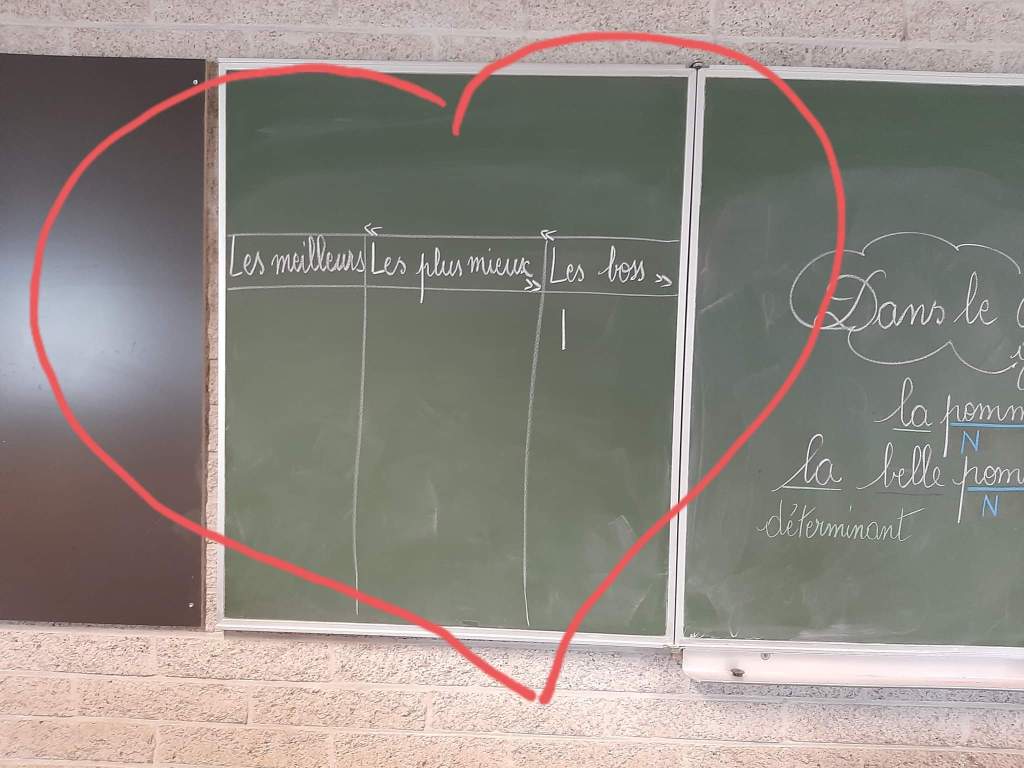 Les meilleurs « Les plus mieux » « Les boss »
|
Dans le
la pomm
N
la belle pom
N
déterminant